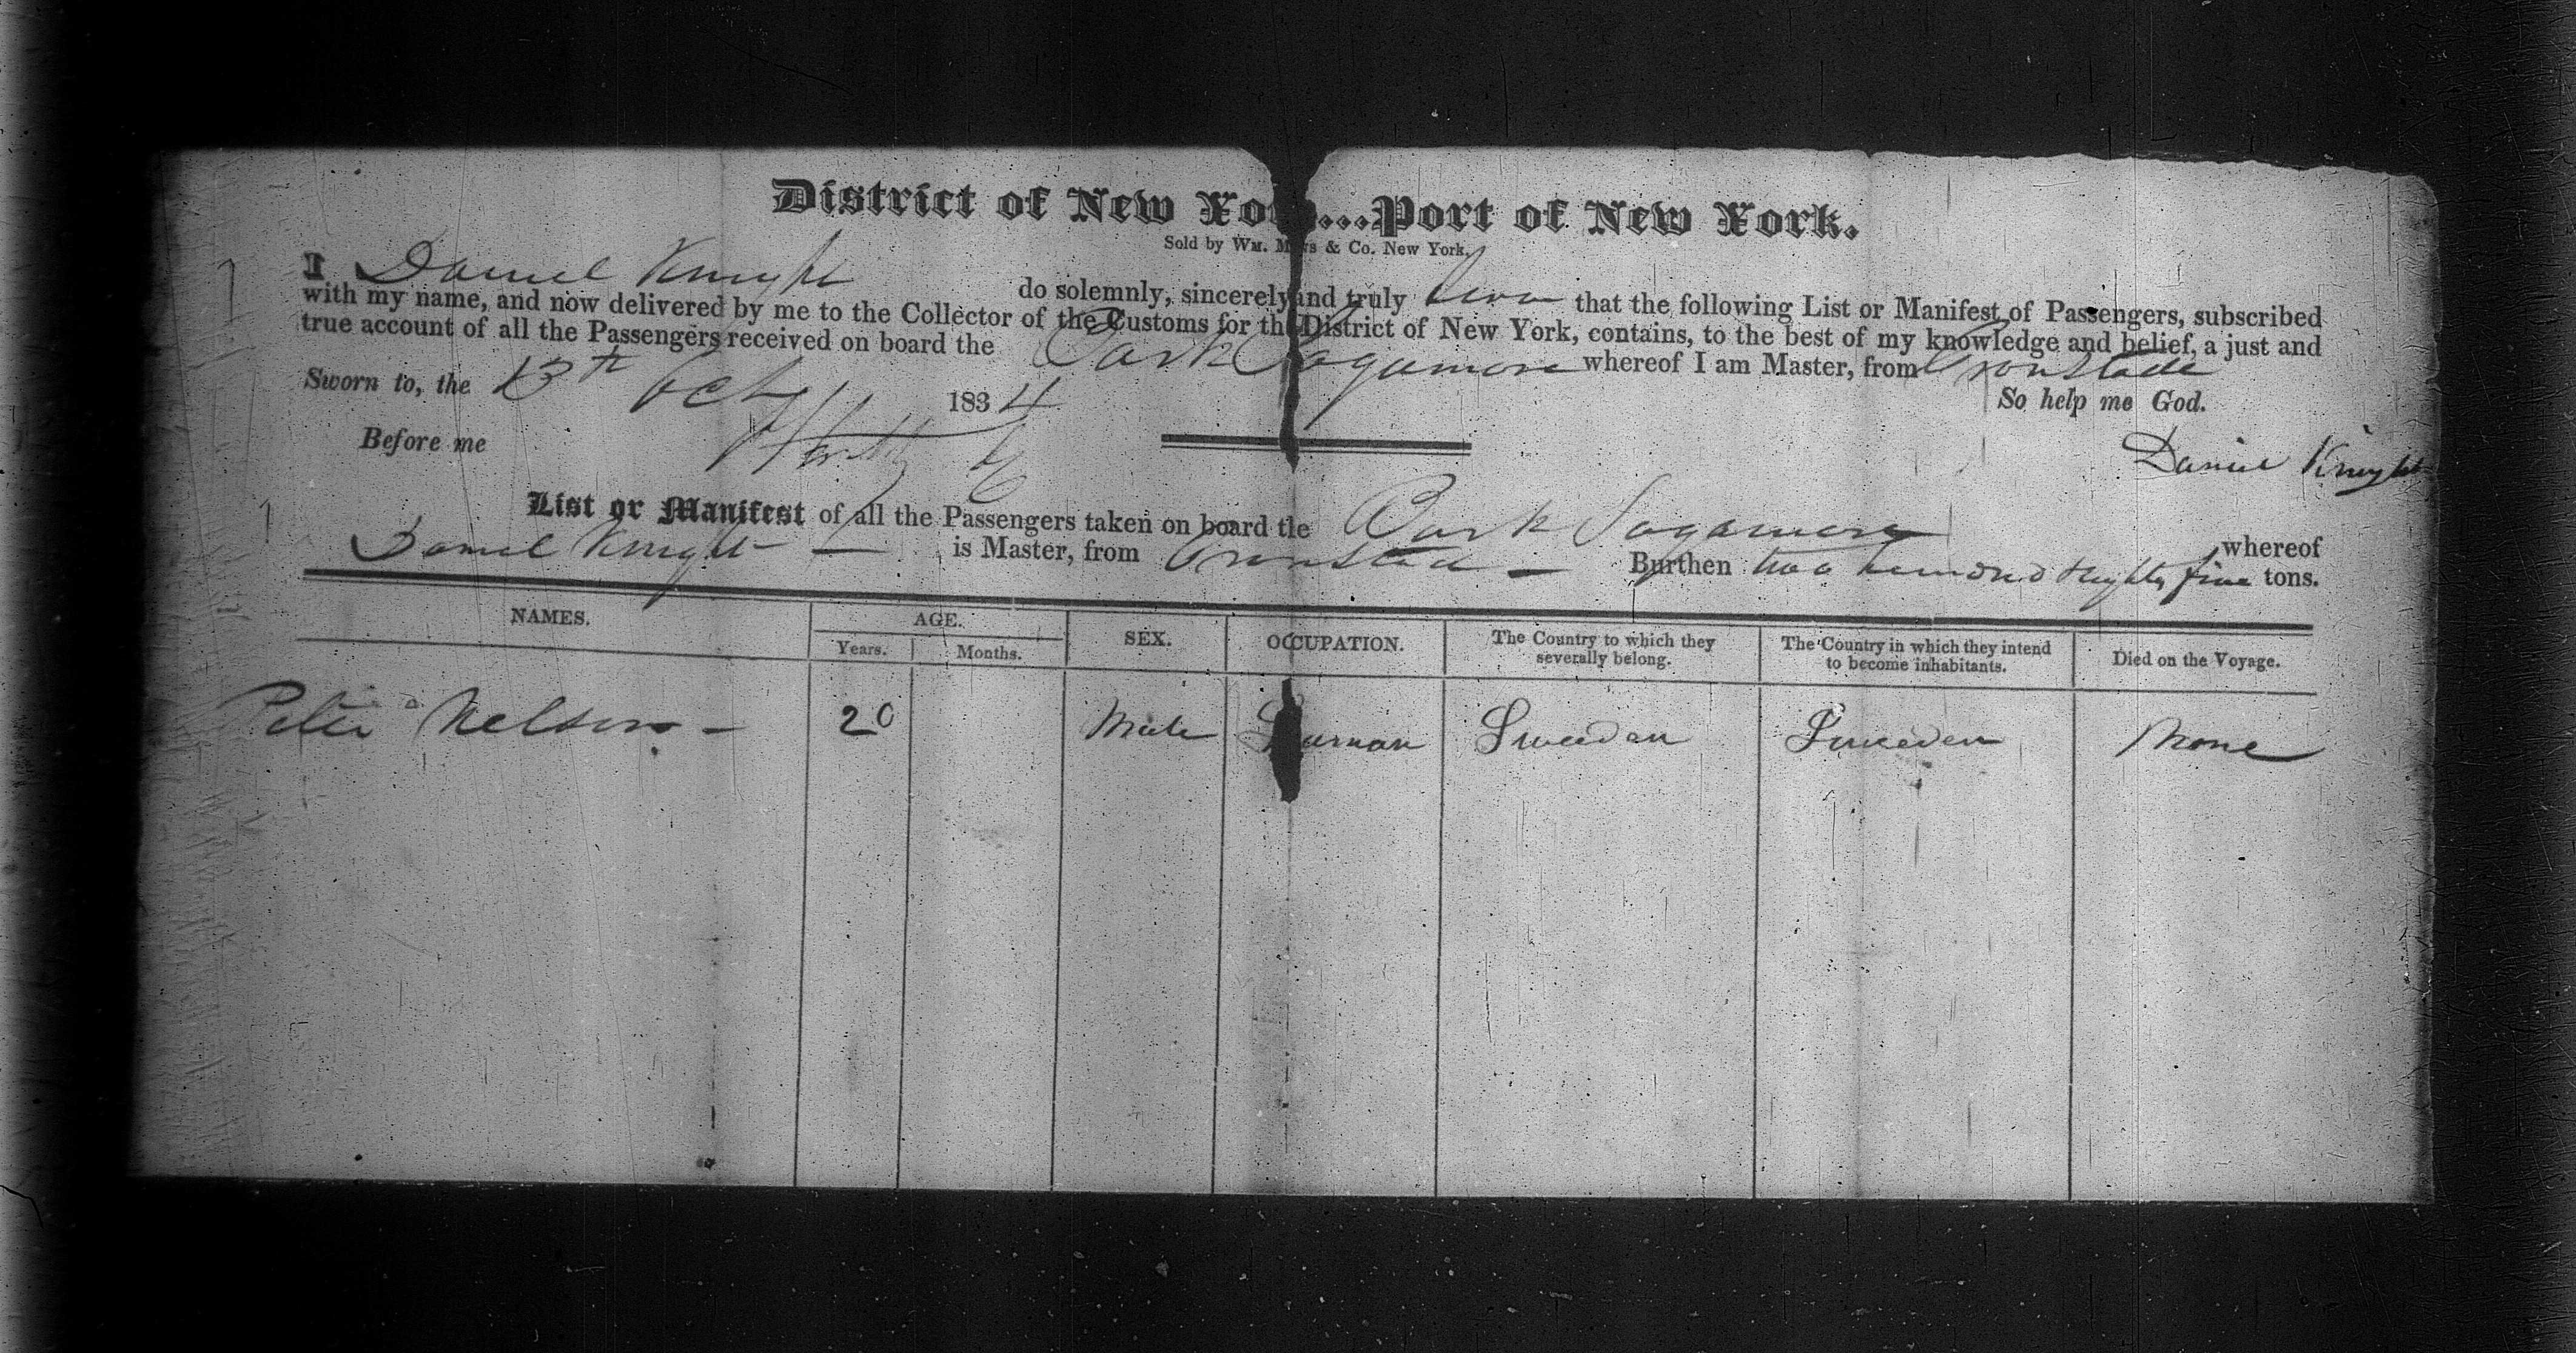 District of New York...Port of New York.
Sold by Wm. & Co. New York.
I Daniel Knight do solemnly, sincerely and truly swear that the following List or Manifest of Passengers, subscribed
with my name, and now delivered by me to the Collector of the Customs for the District of New York, contains, to the best of my knowledge and belief, a just and
true account of all the Passengers received on board the Bark Sagamore whereof I am Master, from Cronstadt
Sworn to, the 13th Oct 1834 So help me God.
Before me
Daniel Knight
List or Manifest of all the Passengers taken on board the Bark Sagamore whereof
Daniel Knight — is Master, from Cronstad — Burthen two hundred Eighty five tons.
NAMES. AGE. SEX. OCCUPATION. The Country to which they severally belong. The Country in which they intend to become inhabitants. Died on the Voyage.
Years. Months.
Peter Nelson — 20 Male Sweden Sweden None